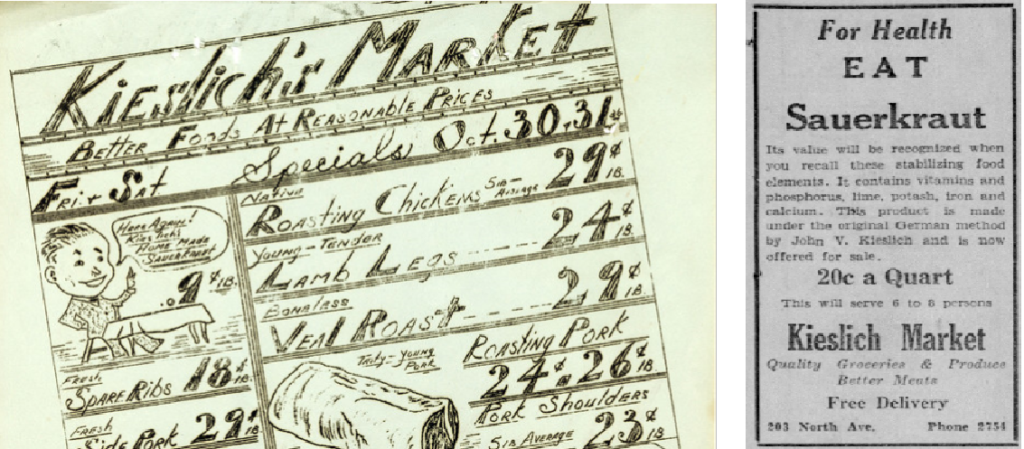 Kieslich's Market
Better Foods At Reasonable Prices
Fri. & Sat Specials Oct. 30, 31st
Here Again!
Kieslich's
Home Made
Sauerkraut
9¢ lb.
Fresh
Spare Ribs 18¢ lb.
Fresh
Side Pork 29¢ lb
Native
Roasting Chickens 5 lb - Average 29¢ lb.
Young - Tender
Lamb Legs 24¢ lb.
Boneless
Veal Roast 29¢ lb.
Truly - Young
Pork
Roasting Pork
24¢ . 26¢ lb.
Pork Shoulders
5 lb Average 23¢ lb
For Health
EAT
Sauerkraut
Its value will be recognized when
you recall these stabilizing food
elements. It contains vitamins and
phosphorus, lime, potash, iron and
calcium. This product is made
under the original German method
by John V. Kieslich and is now
offered for sale.
20c a Quart
This will serve 6 to 8 persons
Kieslich Market
Quality Groceries & Produce
Better Meats
Free Delivery
203 North Ave. Phone 2754